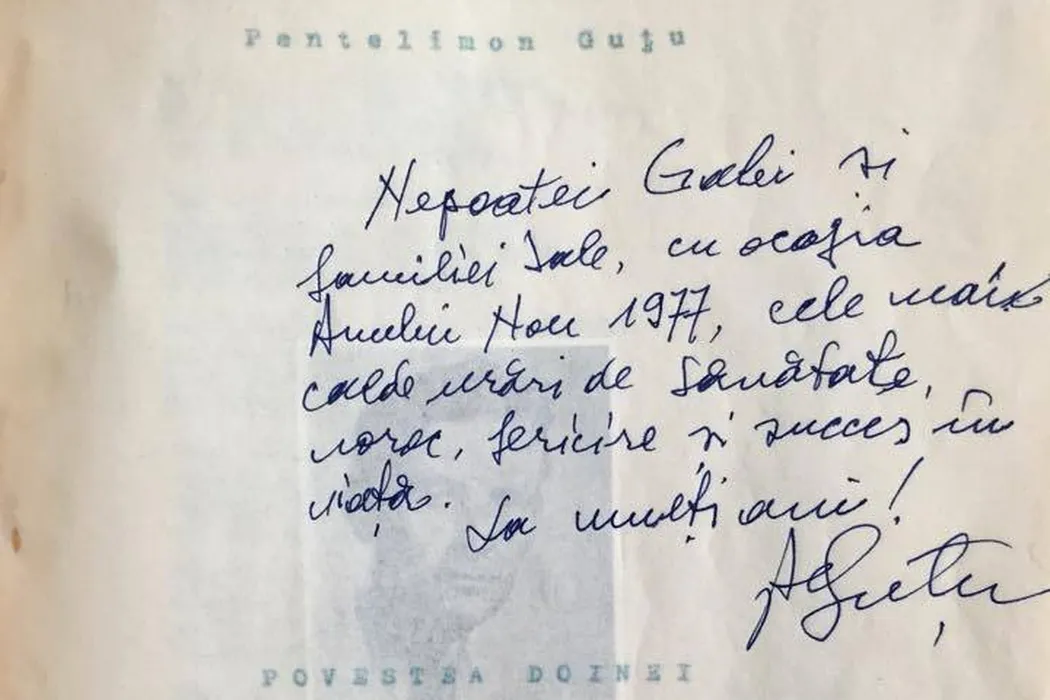 Pentelimon Guțu
Nepoatei Galei și
familiei Sale, cu ocazia
Anului Nou 1977, cele mai
calde urări de sănătate,
noroc, fericire și succes în
viață. La mulți ani!
Guțu
POVESTEA DOINEI